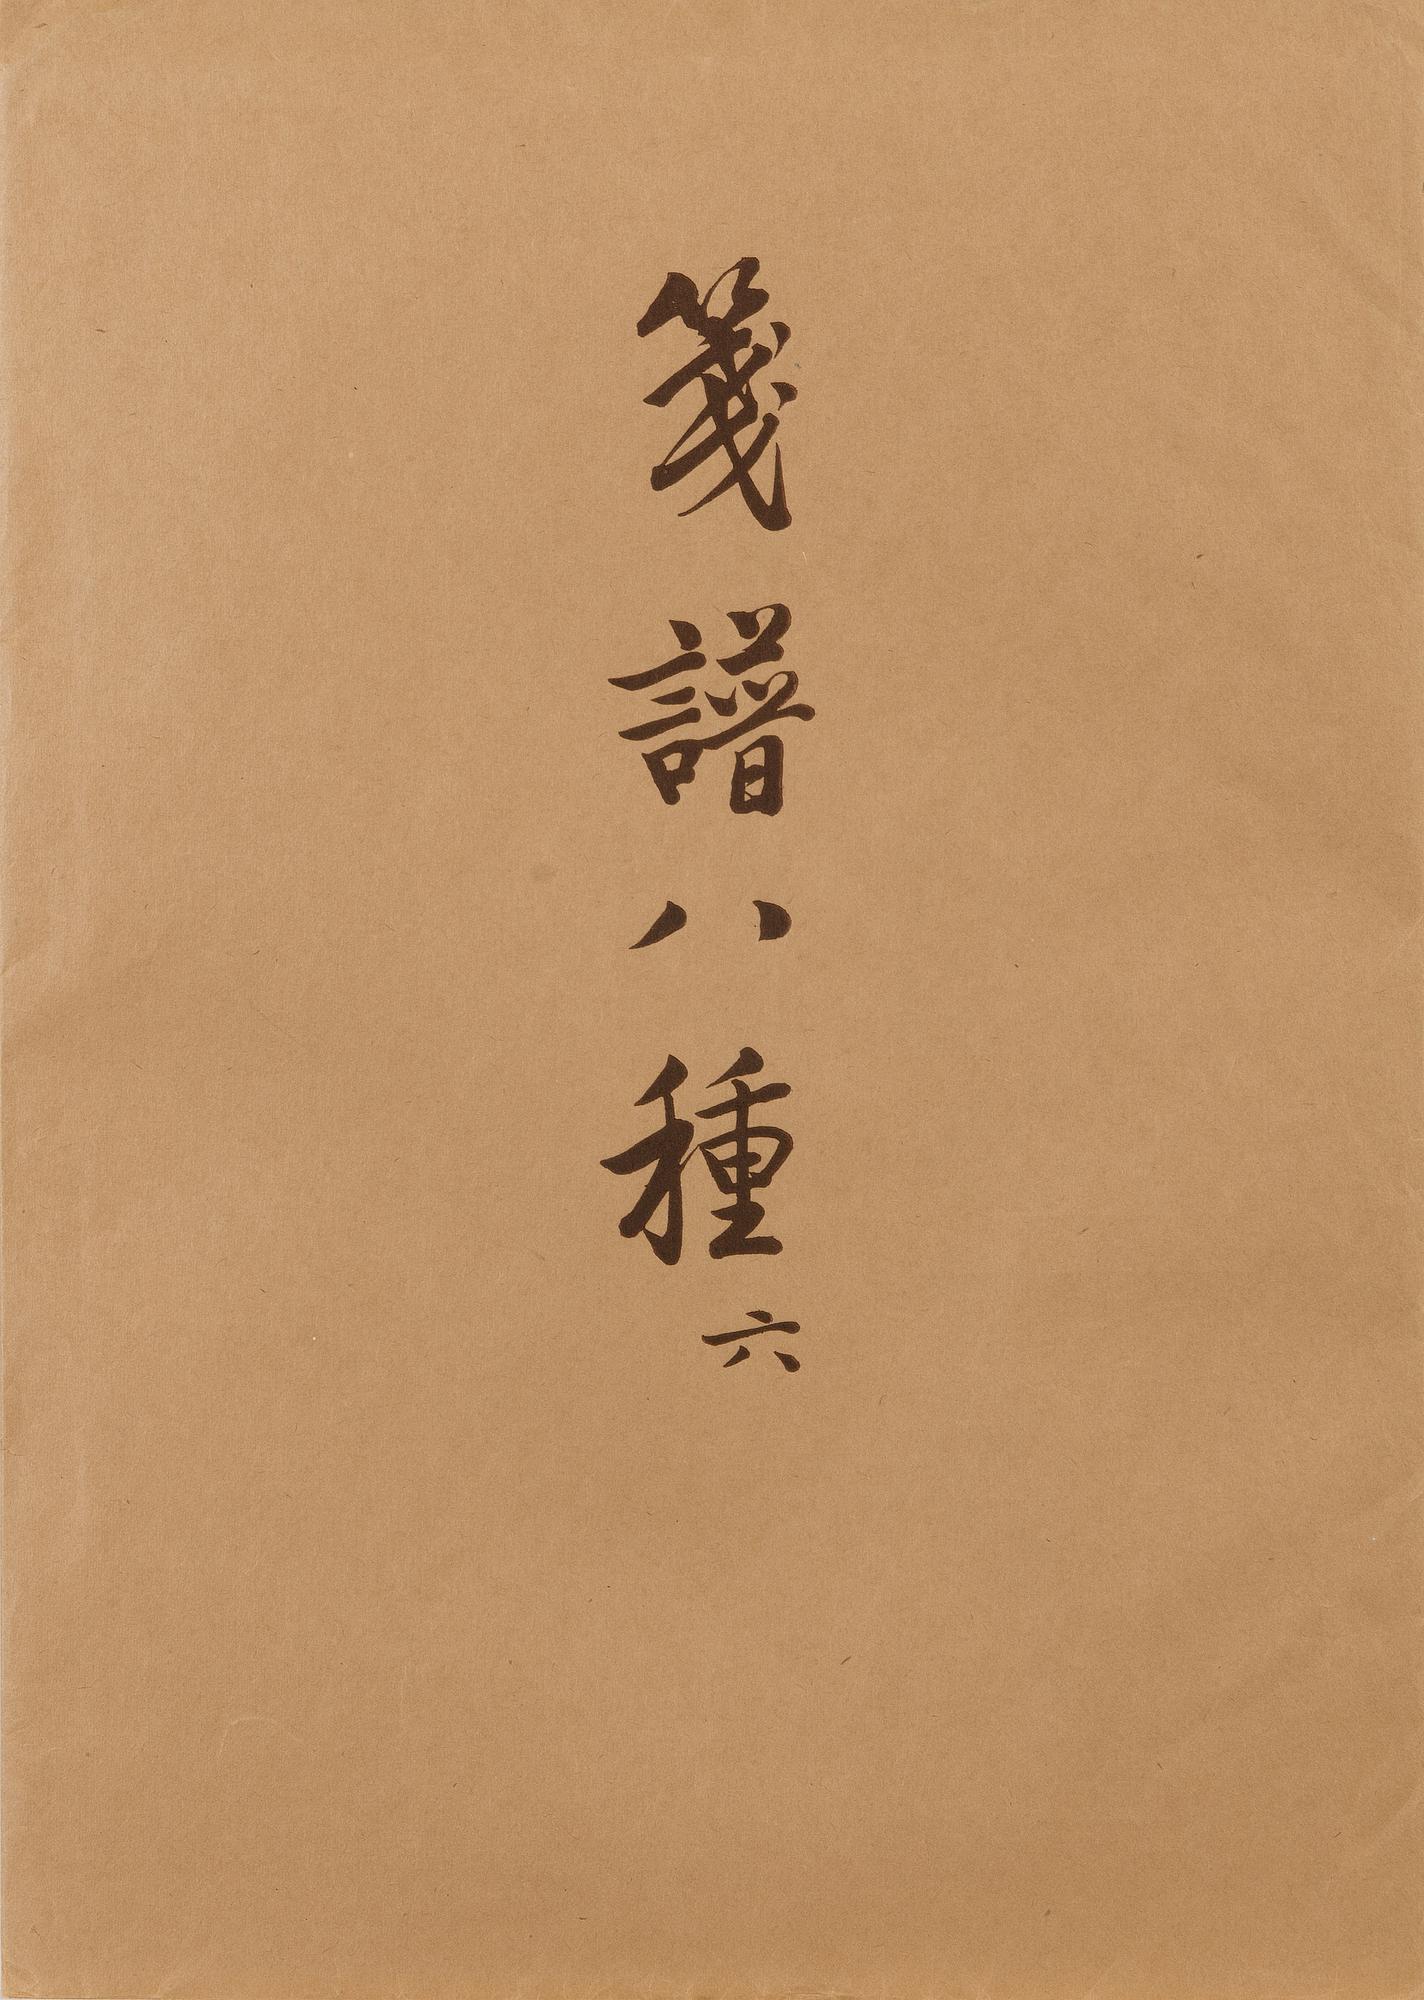 箋譜八種 六